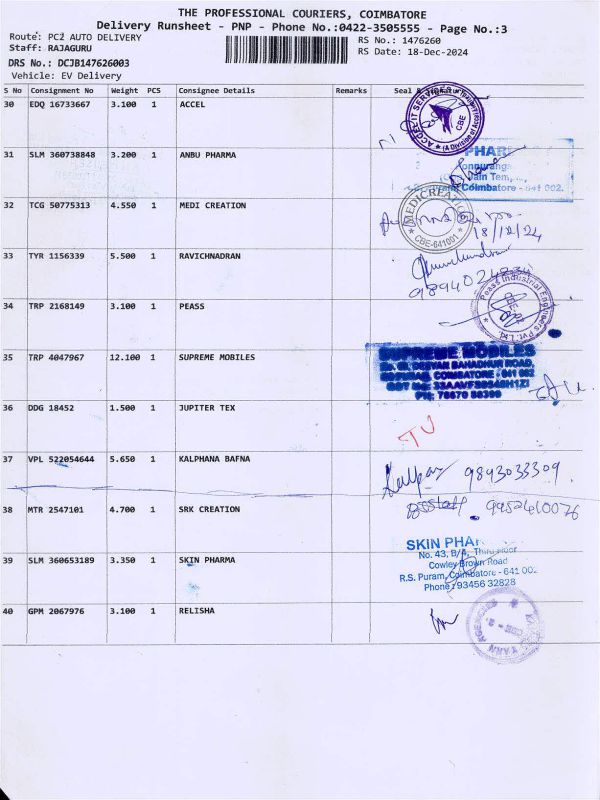 THE PROFESSIONAL COURIERS, COIMBATORE
Delivery Runsheet - PNP - Phone No.:0422-3505555 - Page No.:3
Route: PC2 AUTO DELIVERY
RS No.: 1476260
Staff: RAJAGURU
RS Date: 18-Dec-2024
DRS No.: DCJB147626003
Vehicle: EV Delivery
S No Consignment No Weight PCS Consignee Details Remarks Seal &
30 EDQ 16733667 3.100 1 ACCEL
CBE
31 SLM 360738848 3.200 1 ANBU PHARMA
Coimbatore - 641 002.
32 TCG 50775313 4.550 1 MEDI CREATION
MEDICREATION
CBE-641001
18/12/24
33 TYR 1156339 5.500 1 RAVICHNADRAN
34 TRP 2168149 3.100 1 PEASS
Peass Industrial Engineers Pvt. Ltd.
35 TRP 4047967 12.100 1 SUPREME MOBILES
SUPREME MOBILES
COIMBATORE - 641 002
36 DDG 18452 1.500 1 JUPITER TEX
TJ
37 VPL 522054644 5.650 1 KALPHANA BAFNA
9893033309.
38 MTR 2547101 4.700 1 SRK CREATION
9952410076
39 SLM 360653189 3.350 1 SKIN PHARMA
SKIN PHAR
No. 43, B/4, Third Floor
Cowley Brown Road
R.S. Puram, Coimbatore - 641 00
Phone : 93456 32828
40 GPM 2067976 3.100 1 RELISHA
YARN AGENCIES